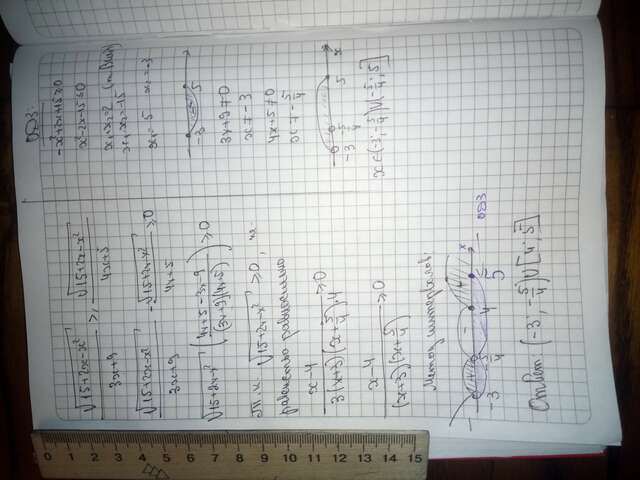 √15+2x-x² / 3x+9 ≥ √15+2x-x² / 4x+5
√15+2x-x² / 3x+9 - √15+2x-x² / 4x+5 ≥0
√15+2x-x² (4x+5-3x-9 / (3x+9)(4x+5)) ≥0
Т.к. √15+2x-x² ≥0, не-
равенство равносильно
x-4 / 3(x+3)(x+5/4)4 ≥0
x-4 / (x+3)(x+5/4) ≥0
Метод интервалов:
-3 -5/4 4 5 x ОДЗ
Ответ: (-3; -5/4)∪[4; 5]
ОДЗ:
-x²+2x+15≥0
x²-2x-15≤0
x₁+x₂=2
x₁·x₂=-15
x₁=5 x₂=-3
-3 5 x
3x+9≠0
x≠-3
4x+5≠0
x≠-5/4
-3 -5/4 5 x
x∈(-3; -5/4)∪(-5/4; 5]
0 1 2 3 4 5 6 7 8 9 10 11 12 13 14 15